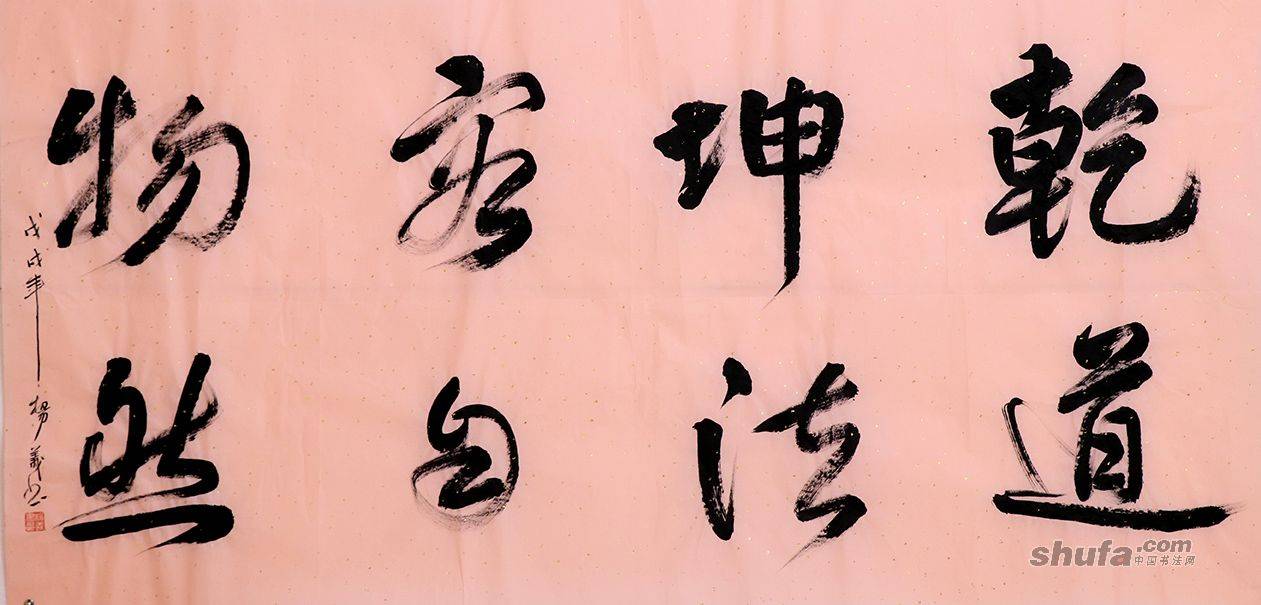 乾坤容物
道法自然
戊戌年 楊義
shufa.com
中国书法网